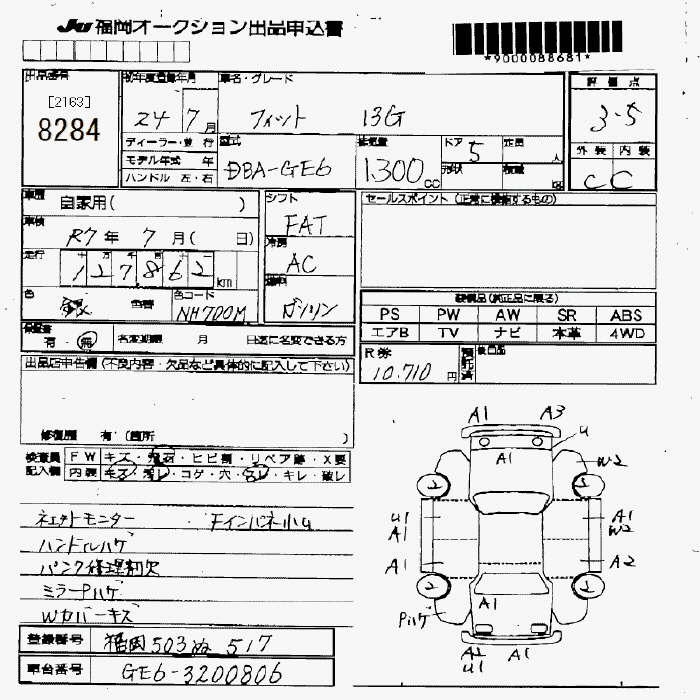 JU 福岡オークション出品申込書
*9000088681*
出品番号
[2163]
8284
初年度登録年月
24 7月
車名・グレード
フィット 13G
評価点
3.5
ディーラー・並行
モデル年式 年
ハンドル 左・右
型式
DBA-GE6
排気量
1300cc
ドア 5
形状
定員 人
積載 kg
外装 内装
C C
車歴
自家用( )
車検
R7年 7月( 日)
走行
十 万 千 百 十
127,862 km
色
銀 色替
色コード
NH700M
シフト
FAT
冷房
AC
燃料
ガソリン
セールスポイント(正常に機能するもの)
装備品(純正品に限る)
PS PW AW SR ABS
エアB TV ナビ 本革 4WD
保証書
有・無
名変期限 月 日迄に名変できる方
R券
10.710円
預託済
後日品
出品店申告欄(不良内容・欠品など具体的に記入して下さい)
修復歴 有(箇所 )
検査員記入欄
FW キズ・飛石・ヒビ割・リペア跡・X要
内装 キズ・汚レ・コゲ・穴・ヌレ・キレ・破レ
モニター ・Fインパネ小U
ハンドルハゲ
パンク修理剤欠
ミラーPハゲ
Wカバーキズ
A1 A3
U
A1
W2
2 2
U1 A1
A1 W2
A1 A2
2 2
A1
Pハゲ
A2 U1 A1
登録番号 福岡503ぬ517
車台番号 GE6-3200806